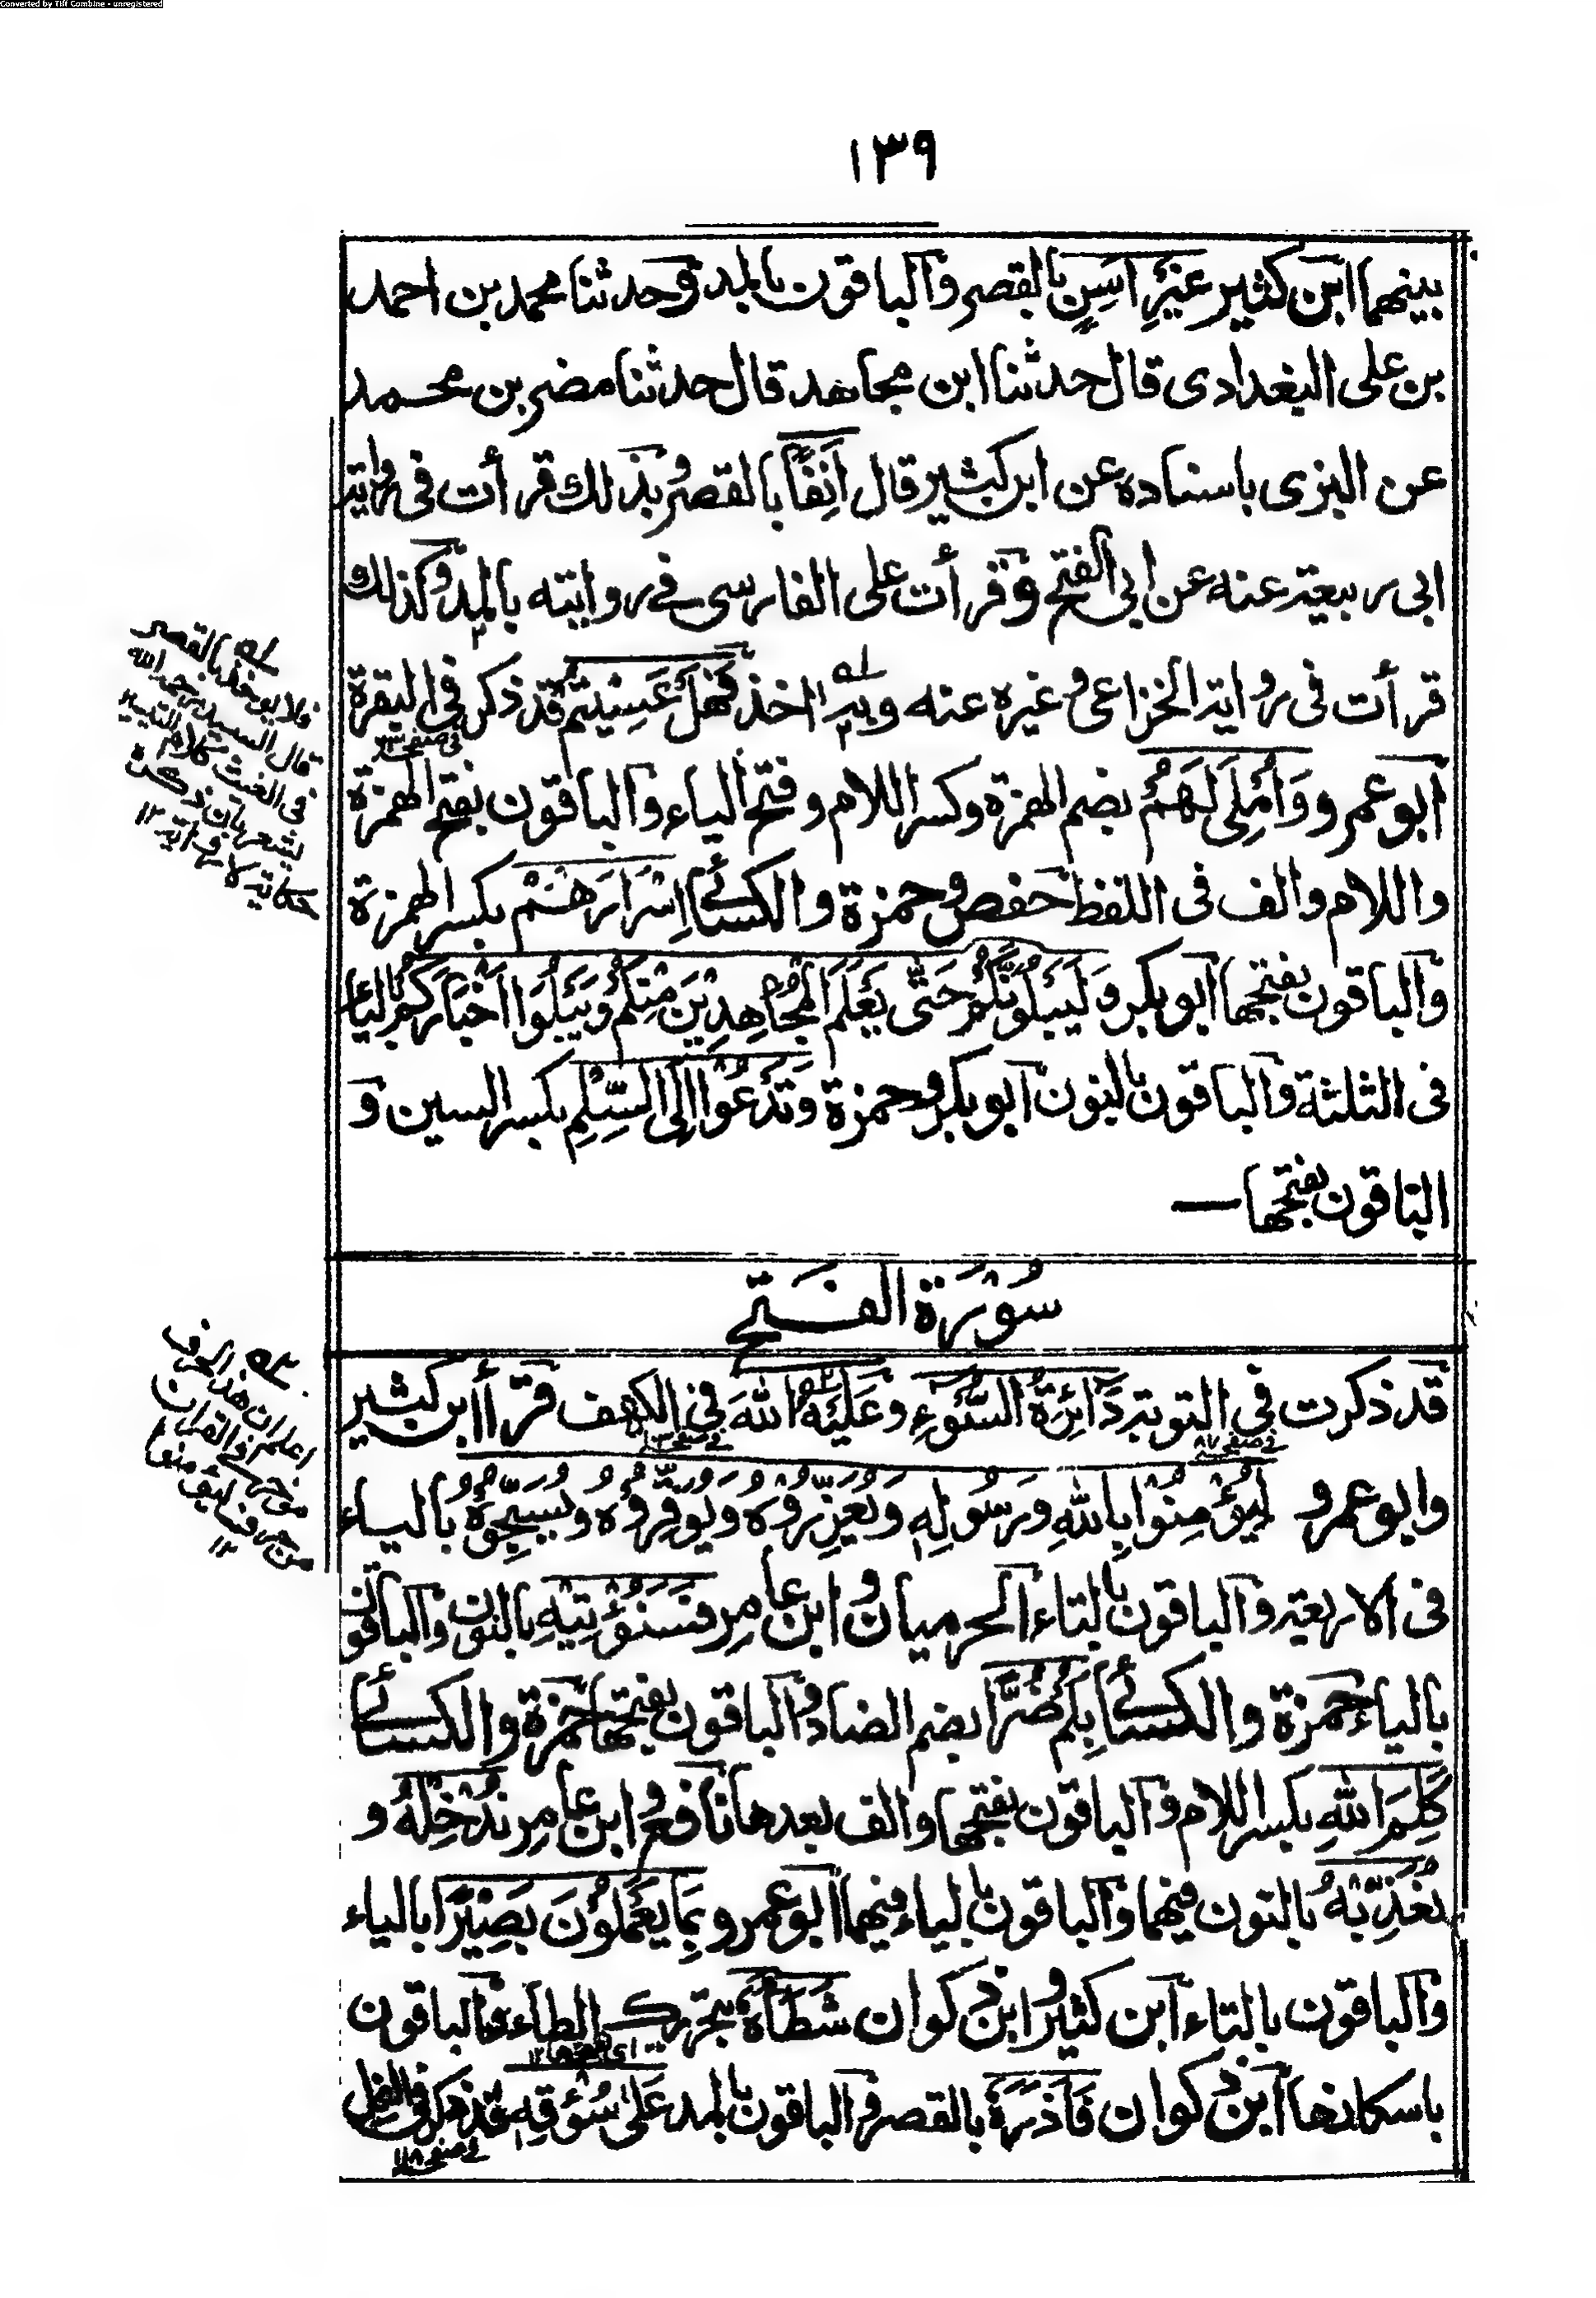 Converted by Tiff Combine - unregistered
١٣٩
بينهما ابن كثير غَيْرِ اَسِنٍ بالقصر والباقون بالمد وحدثنا محمد بن احمد
بن على البغدادى قال حدثنا ابن مجاهد قال حدثنا مضر بن محمد
عن البزى باسناده عن ابن كثير قال اَنِفًا بالقصر وبذلك قرأت فى رواية
ابى ربيعة عنه عن ابى الفتح وقرأت على الفارسى فى روايته بالمد وكذلك
قرأت فى رواية الخزاعى وغيره عنه وبه اخذ فَهَلْ عَسِيْتُمْ قد ذكر فى البقرة
فى صفحه
ابو عمرو وَاُمْلِىَ لَهُمْ بضم الهمزة وكسر اللام وفتح الياء والباقون بفتح الهمزة
واللام والف فى اللفظ حفص وحمزة والكسائى اِسْرَارَهُمْ بكسر الهمزة
والباقون بفتحها ابو بكر وَلَيَبْلُوَنَّكُمْ حَتّٰى يَعْلَمَ الْمُجَاهِدِيْنَ مِنْكُمْ وَيَبْلُوَا اَخْبَارَكُمْ بالياء
فى الثلثة والباقون بالنون ابو بكر وحمزة وَتَدْعُوْا اِلَى السِّلْمِ بكسر السين و
الباقون بفتحها —
سُوْرَة الفَتْح
قد ذكرت فى التوبة دَائِرَةُ السَّوْءِ وعَلَيْهُ اللّٰهَ فى الكهف قرأ ابن كثير
وابو عمرو لِيُؤْمِنُوْا بِاللّٰهِ وَرَسُوْلِهٖ وَيُعَزِّرُوْهُ وَيُوَقِّرُوْهُ وَيُسَبِّحُوْهُ بالياء
فى الاربعة والباقون بالتاء الحرميان وابن عامر فَسَنُؤْتِيْهِ بالنون والباقون
بالياء حمزة والكسائى بِكُمْ ضُرًّا بضم الضاد والباقون بفتحها حمزة والكسائى
كَلِمَ اللّٰهِ بكسر اللام والباقون بفتحها والف بعدها نافع وابن عامر نُدْخِلْهُ و
نُعَذِّبْهُ بالنون فيهما والباقون بالياء فيهما ابو عمرو بِمَا يَعْمَلُوْنَ بَصِيْرًا بالياء
والباقون بالتاء ابن كثير وابن ذكوان شَطَاَهٗ بتحريك الطاء والباقون
باسكانها ابن ذكوان فَاَزَرَهٗ بالقصر والباقون بالمد عَلٰى سُوْقِهٖ قد ذكر فى النمل
ولا يوخذ بالقصر
قال السيد رحمه الله
فى الغيث
اعلم ان هذا الحرف